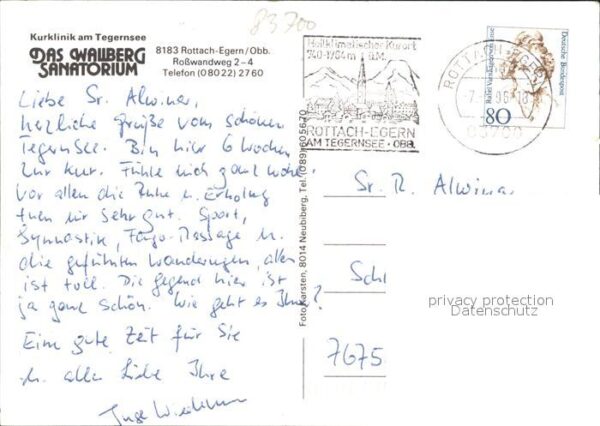 83700
Kurklinik am Tegernsee
DAS WALLBERG
SANATORIUM
8183 Rottach-Egern/Obb.
Roßwandweg 2–4
Telefon (08022) 2760
Heilklimatischer Kurort
ROTTACH-EGERN
AM TEGERNSEE · OBB.
Deutsche Bundespost
80
Liebe Sr. Alwina,
herzliche Grüße vom schönen
Tegernsee. Bin hier 6 Wochen
zur Kur. Fühle mich ganz wohl.
vor allen die Ruhe u. Erholung
tuen mir sehr gut. Sport,
Gymnastik, Fango-Massage u.
die geführten Wanderungen, alles
ist toll. Die Gegend hier ist
ja ganz schön. Wie geht es Ihnen?
Eine gute Zeit für Sie
u. alles Liebe Ihre
Inge
Fotopkarsten, 8014 Neubiberg, Tel. (089) 605670
Sr. R. Alwina
Schl
7675
privacy protection
Datenschutz